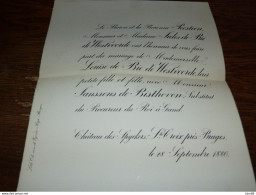 Le Baron et la Baronne
Monsieur et Madame Jules de Bie
de Westvoorde ont l'honneur de vous faire
part du mariage de Mademoiselle
Louise de Bie de Westvoorde, leur
petite fille et fille, avec Monsieur
Janssens de Bisthoven, Substitut
du Procureur du Roi à Gand.
Château des Spyckers, Ste Croix près Bruges,
le 28 Septembre 1880.